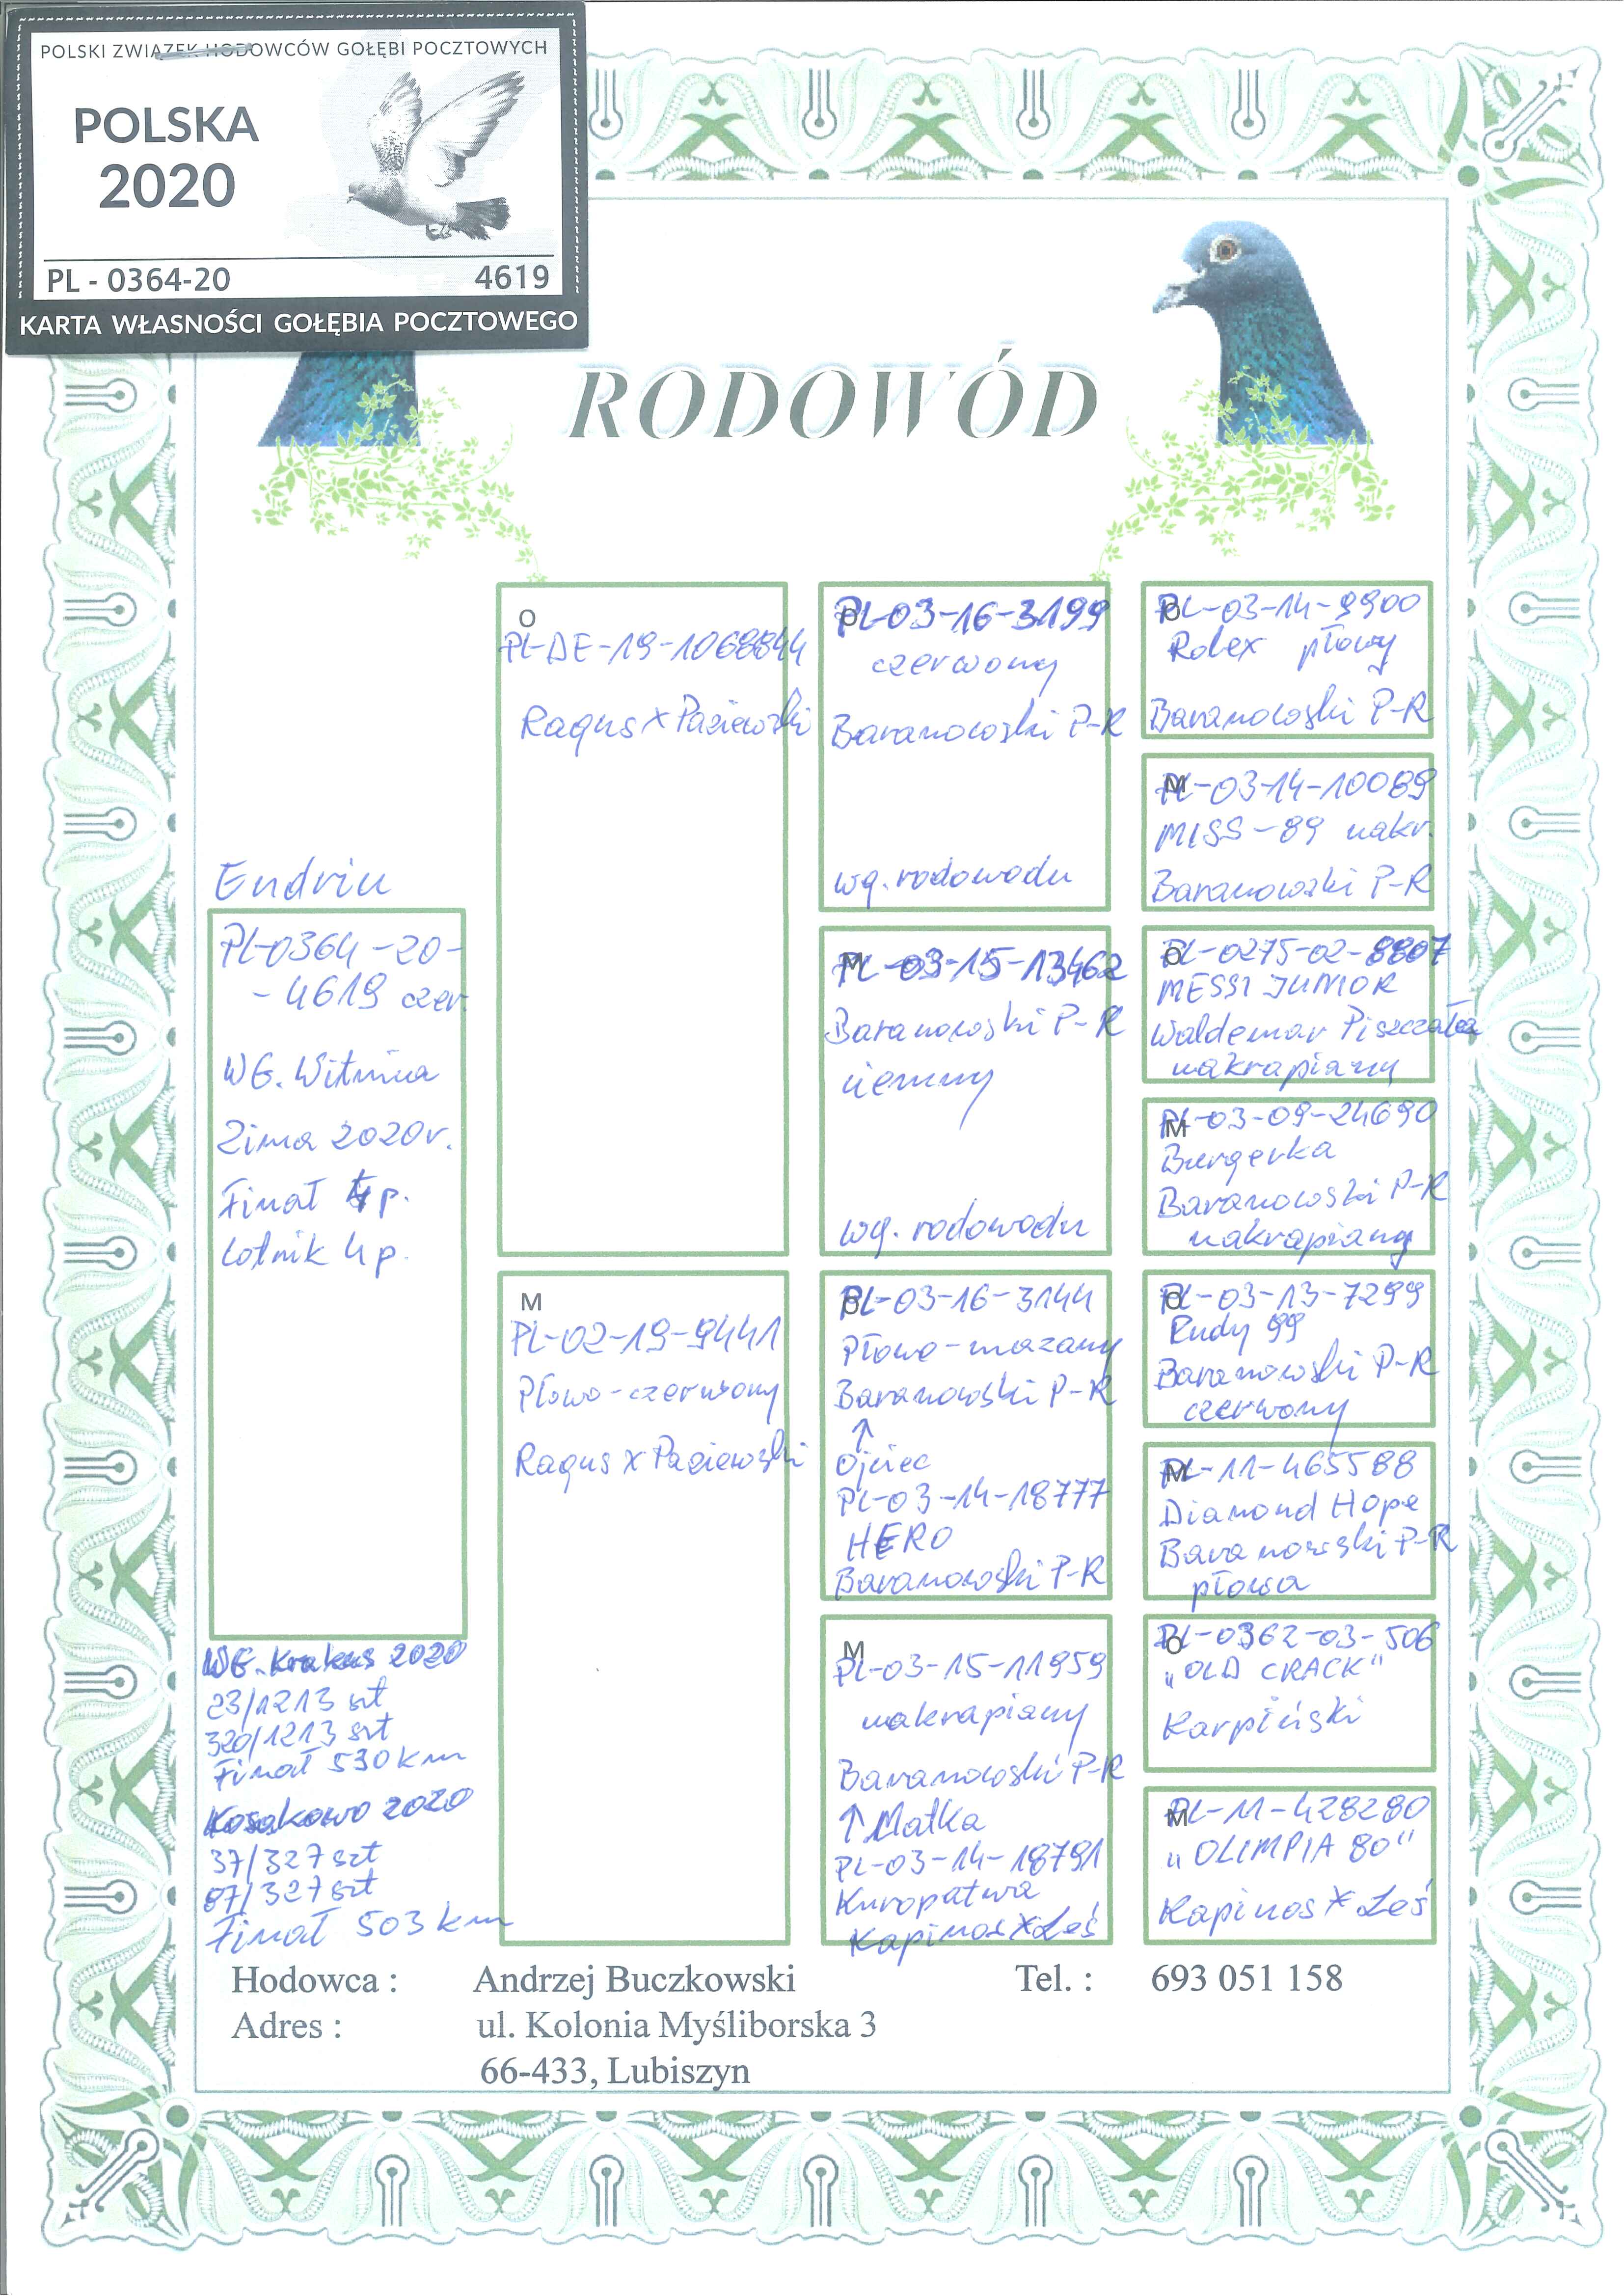 POLSKI ZWIĄZEK HODOWCÓW GOŁĘBI POCZTOWYCH
POLSKA
2020
PL - 0364-20 4619
KARTA WŁASNOŚCI GOŁĘBIA POCZTOWEGO
RODOWÓD
Endriu
PL-0364-20-
-4619 czer.
WG. Witnica
Zima 2020r.
Finał 4p.
Lotnik 4p.
WG. Krakus 2020
23/1213 szt
320/1213 szt
Finał 530km
Kosakowo 2020
37/327 szt
87/327 szt
Finał 503 km
O
PL-DE-19-1068844
Ragus x Paziewski
M
PL-02-19-9441
Płowo-czerwony
Ragus x Paziewski
O
PL-03-16-3199
czerwony
Baranowski P-R
wg. rodowodu
M
PL-03-15-13462
Baranowski P-R
ciemny
wg. rodowodu
O
PL-03-16-3144
Płowo-mazany
Baranowski P-R
↑
Ojciec
PL-03-14-18777
HERO
Baranowski P-R
M
PL-03-15-11959
nakrapiany
Baranowski P-R
↑ Matka
PL-03-14-18791
Kuropatwa
Kapinos x Łeś
O
PL-03-14-9900
Rolex płowy
Baranowski P-R
M
PL-03-14-10089
MISS-89 nakr.
Baranowski P-R
O
PL-0275-02-8807
MESSI JUNIOR
Waldemar Piszczałka
nakrapiany
M
PL-03-09-24690
Burgerka
Baranowski P-R
nakrapiany
O
PL-03-13-7299
Rudy 99
Baranowski P-R
czerwony
M
PL-11-465588
Diamond Hope
Baranowski P-R
płowa
O
PL-0362-03-506
„OLD CRACK"
Karpiński
M
PL-11-428280
„OLIMPIA 80"
Kapinos x Łeś
Hodowca : Andrzej Buczkowski Tel. : 693 051 158
Adres : ul. Kolonia Myśliborska 3
66-433, Lubiszyn